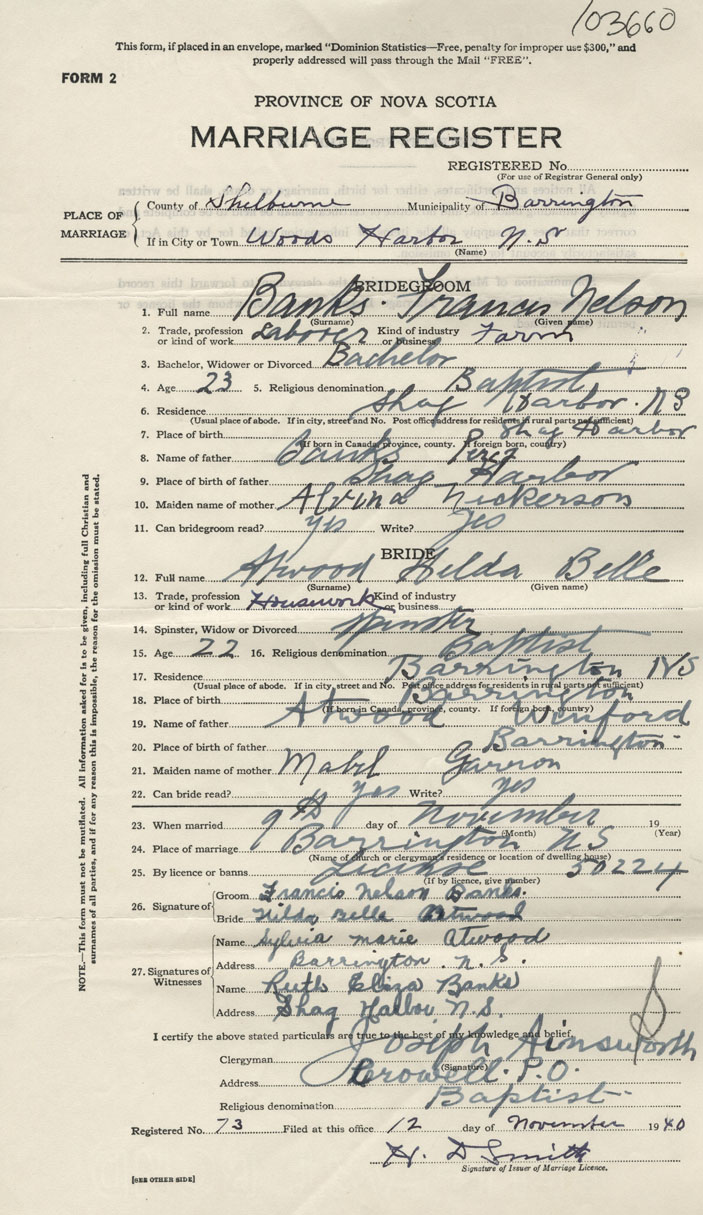 103660
This form, if placed in an envelope, marked "Dominion Statistics—Free, penalty for improper use $300," and
properly addressed will pass through the Mail "FREE".
FORM 2
PROVINCE OF NOVA SCOTIA
MARRIAGE REGISTER
REGISTERED No.
(For use of Registrar General only)
PLACE OF MARRIAGE
County of Shelburne Municipality of Barrington
If in City or Town Woods Harbor N.S
(Name)
BRIDEGROOM
1. Full name Banks. Francis Nelson
(Surname) (Given name)
2. Trade, profession or kind of work Laborer Kind of industry or business Farm
3. Bachelor, Widower or Divorced Bachelor
4. Age 23 5. Religious denomination Baptist
6. Residence Shag Harbor. N S
(Usual place of abode. If in city, street and No. Post office address for residents in rural parts not sufficient)
7. Place of birth Shag Harbor
(If born in Canada, province, county. If foreign born, country)
8. Name of father Banks Percy
9. Place of birth of father Shag Harbor
10. Maiden name of mother Alvina Nickerson
11. Can bridegroom read? Yes Write? Yes
BRIDE
12. Full name Atwood Hilda Belle
(Surname) (Given name)
13. Trade, profession or kind of work Housework Kind of industry or business
14. Spinster, Widow or Divorced Spinster
15. Age 22 16. Religious denomination Baptist
17. Residence Barrington NS
(Usual place of abode. If in city, street and No. Post office address for residents in rural parts not sufficient)
18. Place of birth Barrington
(If born in Canada, province, county. If foreign born, country)
19. Name of father Atwood Winford
20. Place of birth of father Barrington
21. Maiden name of mother Mabel
22. Can bride read? Yes Write? Yes
23. When married 9th day of November 19
(Month) (Year)
24. Place of marriage Barrington NS
(Name of church or clergyman's residence or location of dwelling house)
25. By licence or banns License 50224
(If by licence, give number)
26. Signature of
Groom Francis Nelson Banks.
Bride Hilda Belle Atwood
27. Signatures of Witnesses
Name Sylvia Marie Atwood
Address Barrington. N.S.
Name Ruth Eliza Banks
Address Shag Harbor, N.S.
I certify the above stated particulars are true to the best of my knowledge and belief.
Clergyman Joseph Ainsworth
(Signature)
Address Crowell. P.O.
Religious denomination Baptist
Registered No. 73 Filed at this office 12 day of November 1940
H. D Smith
Signature of Issuer of Marriage Licence.
[SEE OTHER SIDE]
NOTE.—This form must not be mutilated. All information asked for is to be given, including full Christian and
surnames of all parties, and if for any reason this is impossible, the reason for the omission must be stated.